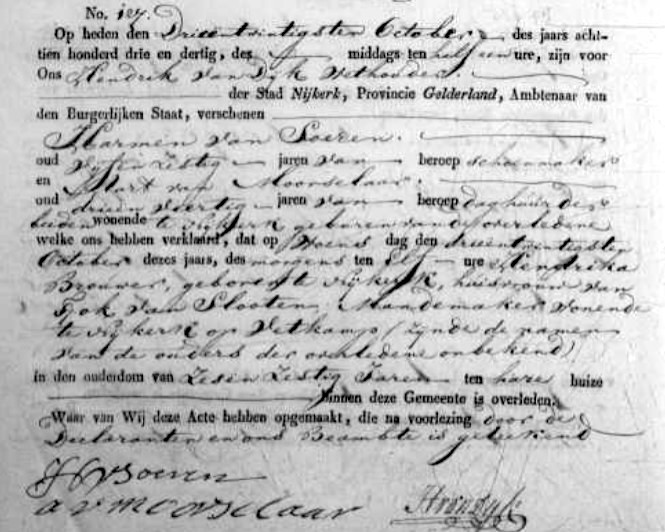 No. 127.
Op heden den Drieentwintigsten October des jaars acht-
tien honderd drie en dertig, des middags ten half een ure, zijn voor
Ons Hendrik van Dyk Wethouder.
der Stad Nijkerk, Provincie Gelderland, Ambtenaar van
den Burgerlijken Staat, verschenen
Harmen van Soeren.
oud vyfen Zestig jaren van beroep schoenmaker
en Aart van Moorselaar.
oud drieen veertig jaren van beroep daghuurder
beiden wonende te Nykerk geburen van de overledene
welke ons hebben verklaard, dat op Woens dag den drieentwintigsten
October dezes jaars, des morgens ten Elf ure Hendrika
Brouwer, geboren te Nykerk, huisvrouw van
van Slooten, Mandemaker wonende
te Nykerk op Vetkamp (zynde de namen
van de ouders der overledene onbekend)
in den ouderdom van Zesen Zestig Jaren ten hare huize
binnen deze Gemeente is overleden;
Waar van Wij deze Acte hebben opgemaakt, die na voorlezing door de
Declaranten en ons Beambte is getekend
a v moorselaar HvanDyk